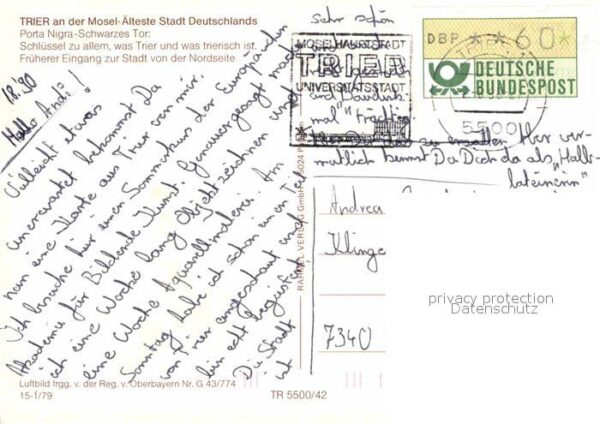 TRIER an der Mosel-Älteste Stadt Deutschlands
Porta Nigra-Schwarzes Tor:
Schlüssel zu allem, was Trier und was trierisch ist.
Früherer Eingang zur Stadt von der Nordseite
Hallo Andi!
Vielleicht etwas
unerwartet bekommst Du
nun eine Karte aus Trier von mir.
Ich besuche hier einen Sommerkurs der Europäischen
Akademie für Bildende Kunst. Genauer gesagt mache
ich eine Woche lang Objektzeichnen und
eine Woche Aquarellmalerei. Am
Sonntag habe ich schon einen Teil
von Trier angeschaut und
bin echt begeistert.
Die Stadt
ist
Sehr schön
und
mal"
zu
Aber ver-
mutlich kennst Du Dich da als "Halb-
lateinerin"
MOSELHAUPTSTADT
TRIER
UNIVERSITÄTSSTADT
DBP ** 60 *
DEUTSCHE
BUNDESPOST
5500
Andrea
Klinge
7340
privacy protection
Datenschutz
Luftbild frgg. v. der Reg. v. Oberbayern Nr. G 43/774
15-1/79
TR 5500/42